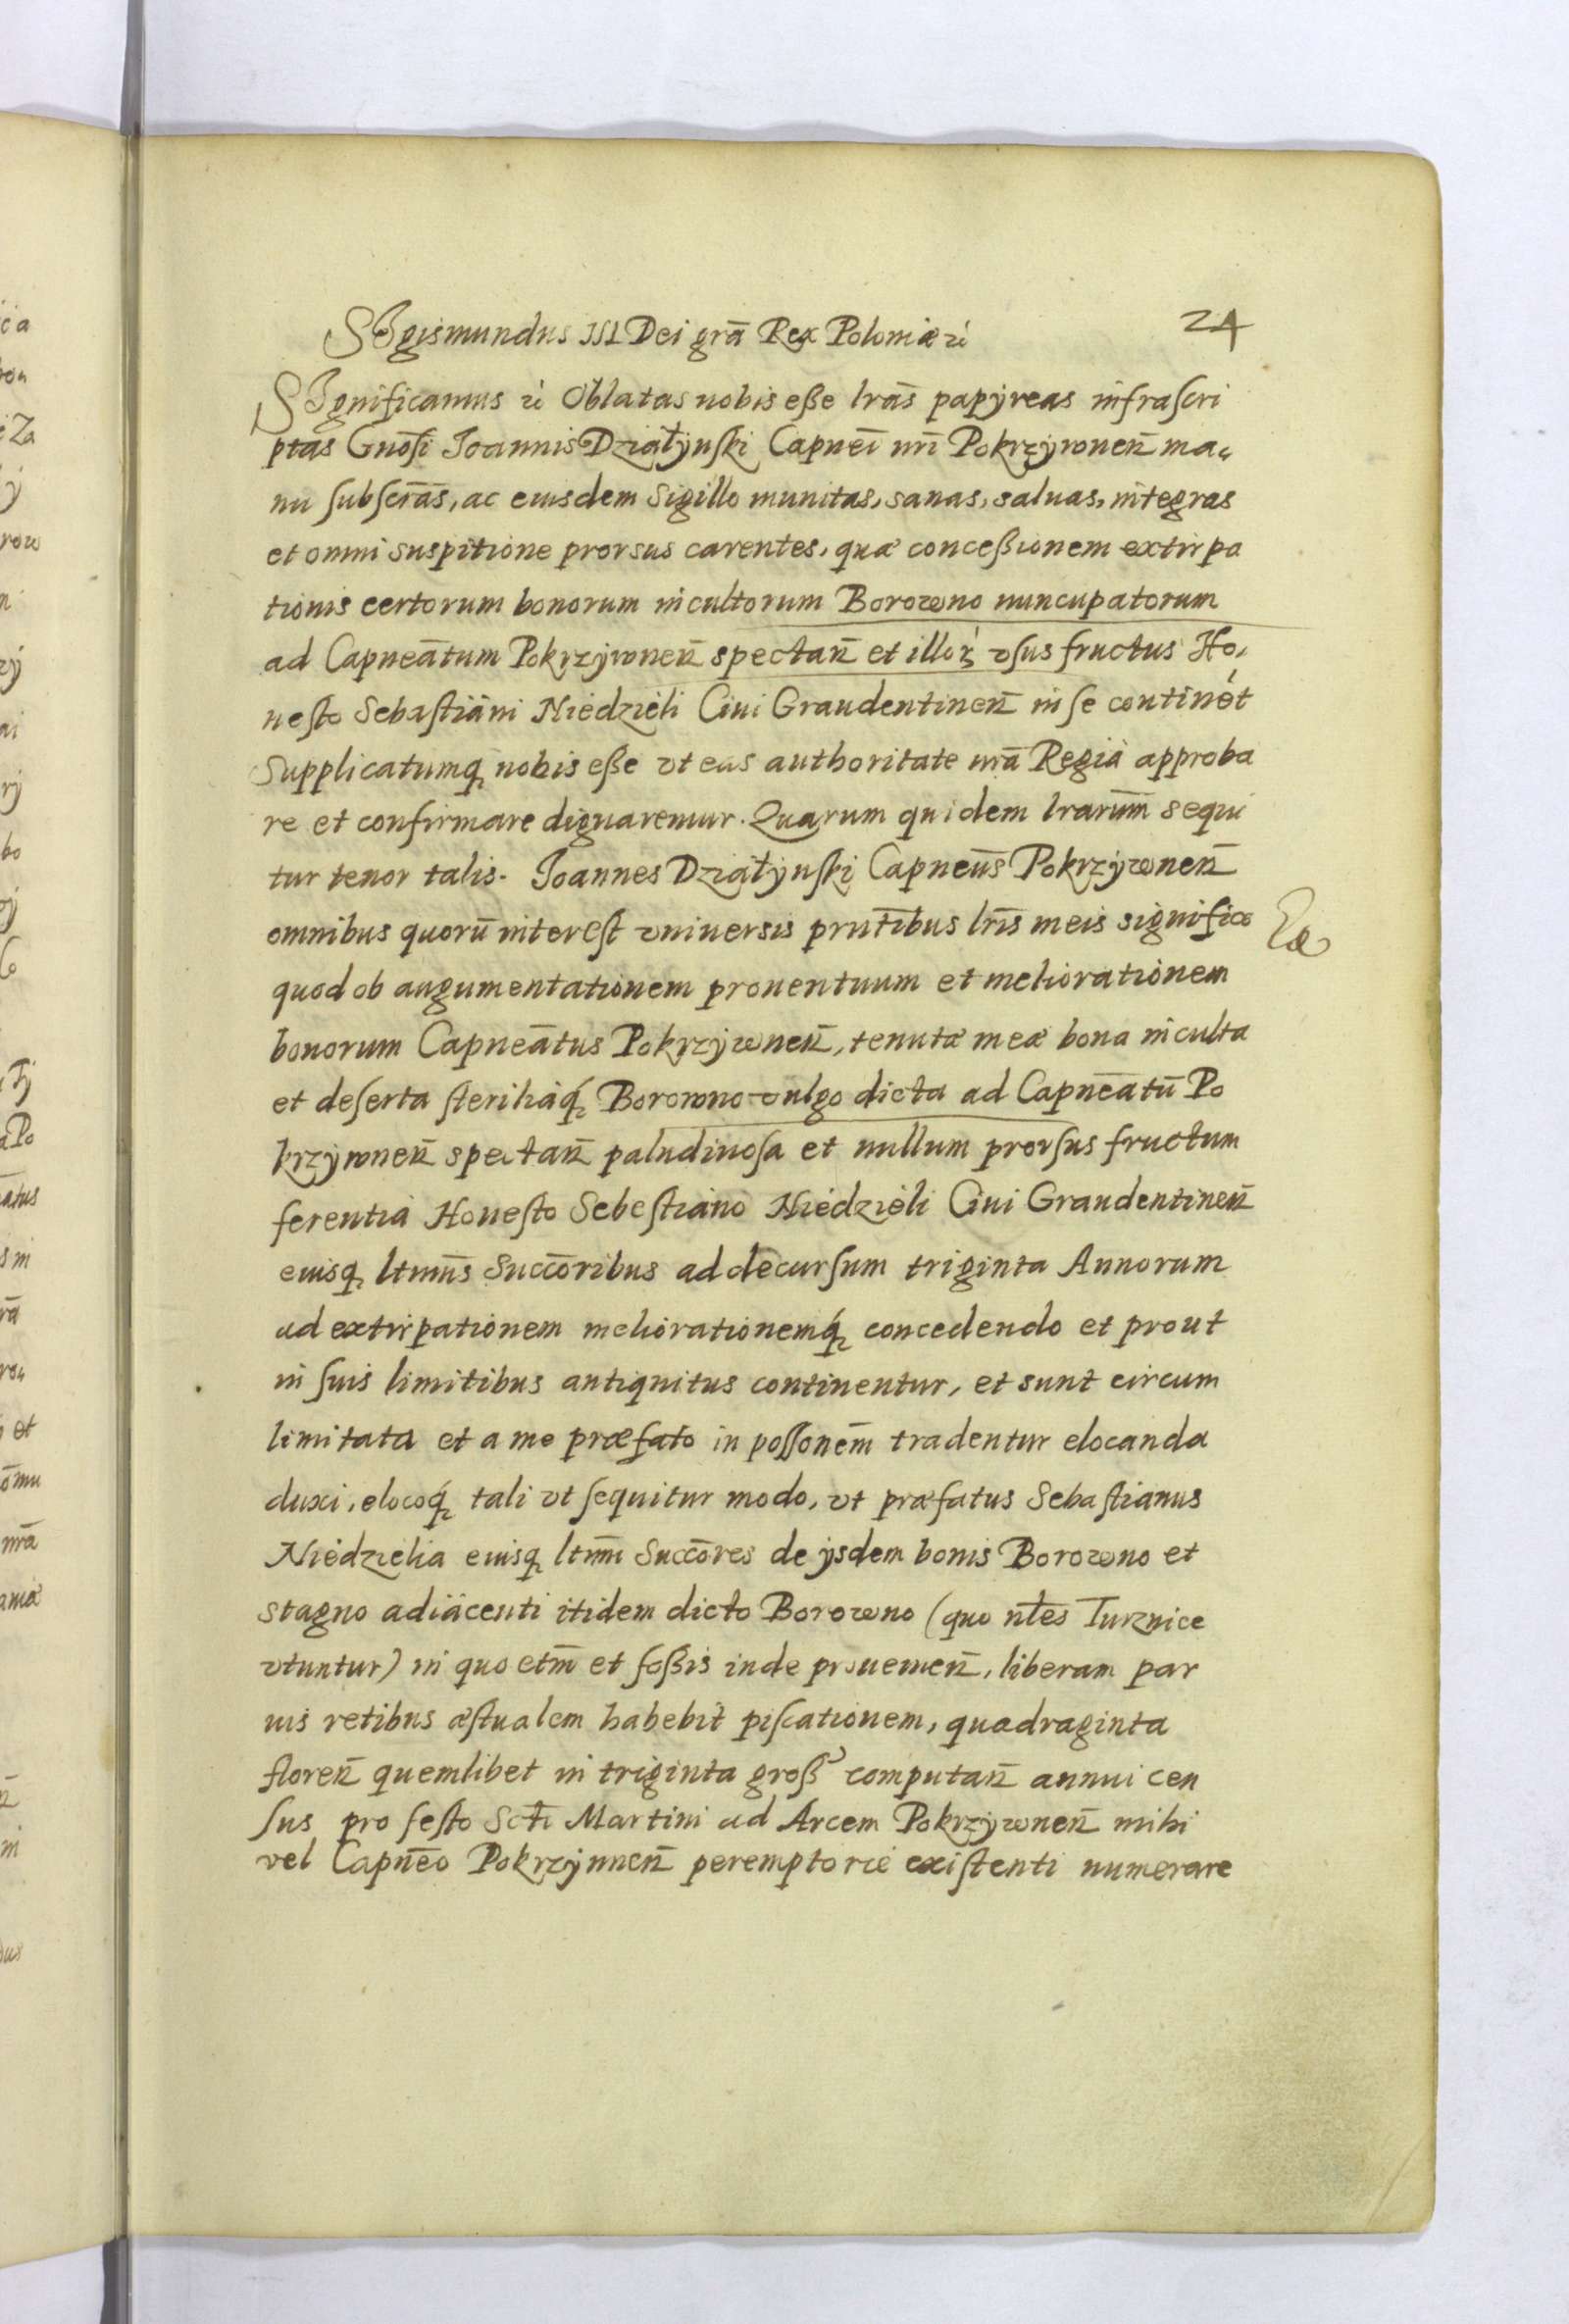 24
SIgismundus III Dei grã Rex Poloniæ &
SIgnificamus & Oblatas nobis eße lrãs papyreas infrascri
ptas Gnosi Joannis Działynski Capnei nri Pokrzywnen̄ ma,
nu subscrãs, ac eiusdem Sigillo munitas, sanas, saluas, integras
et omni suspitione prorsus carentes, quæ conceßionem extirpa
tionis certorum bonorum incultorum Borowno nuncupatorum
ad Capneãtum Pokrzywnen̄ spectan̄ et illoꝝ vsus fructus Ho,
nesto Sebastiani Niedzieli Ciui Graudentinen̄ in se continet
Supplicatumq̨ nobis eße vt eas authoritate nrã Regia approba
re et confirmare dignaremur. Quarum quidem lrarum̄ sequi
tur tenor talis. Joannes Działynski Capneus̄ Pokrzywnen̄
omnibus quorū interest vniuersis prntibus lris̄ meis significo
quod ob augumentationem prouentuum et meliorationem
bonorum Capneãtus Pokrzywnen̄, tenutæ meæ bona inculta
et deserta steriliaq̨ Borowno vulgo dicta ad Capneãtū Po
krzywnen̄ spectan̄ paludinosa et nullum prorsus fructum
ferentia Honesto Sebestiano Niedzieli Ciui Graudentinen̄
eiusq̨ ltmis̄ Succōribus ad decursum triginta Annorum
ad extirpationem meliorationemq̨ concedendo et prout
in suis limitibus antiquitus continentur, et sunt circum
limitata et a me præfato in possonem̄ tradentur elocanda
duxi, elocoq̨ tali vt sequitur modo, vt præfatus Sebastianus
Niedzielia eiusq̨ ltmi̅ Succōres de ijsdem bonis Borowno et
stagno adiacenti itidem dicto Borowno (quo ntes̄ Turznice
vtuntur) in quo etm̄ et foßis inde prouenien̄, liberam par
uis retibus æstualem habebit piscationem, quadraginta
floren̄ quemlibet in triginta groß computan̄ annui cen
sus pro festo Scti̅ Martini ad Arcem Pokrzywnen̄ mihi
vel Capnēo Pokrzywnen̄ peremptorie existenti numerare